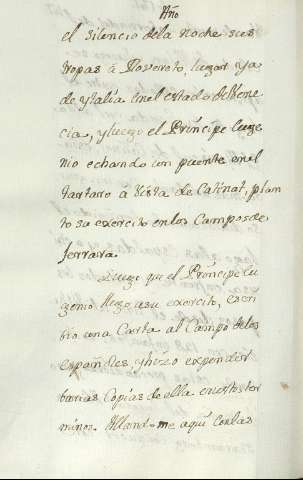 Año
el silencio dela noche sus
tropas á Rovereto, lugar ya
de ytalia en el estado de Vene
cia, y luego el Príncipe Euge
nio echando un puente en el
tartaro á vista de Catinat, plan
to su exercito en los Campos de
ferrara.
Luego que el Príncipe Eu
genio llego a su exercito, escri
vio una Carta al Campo de los
españoles y hizo expendir
barias Copias de ella en estos ter
minos. Allandome aqui con las